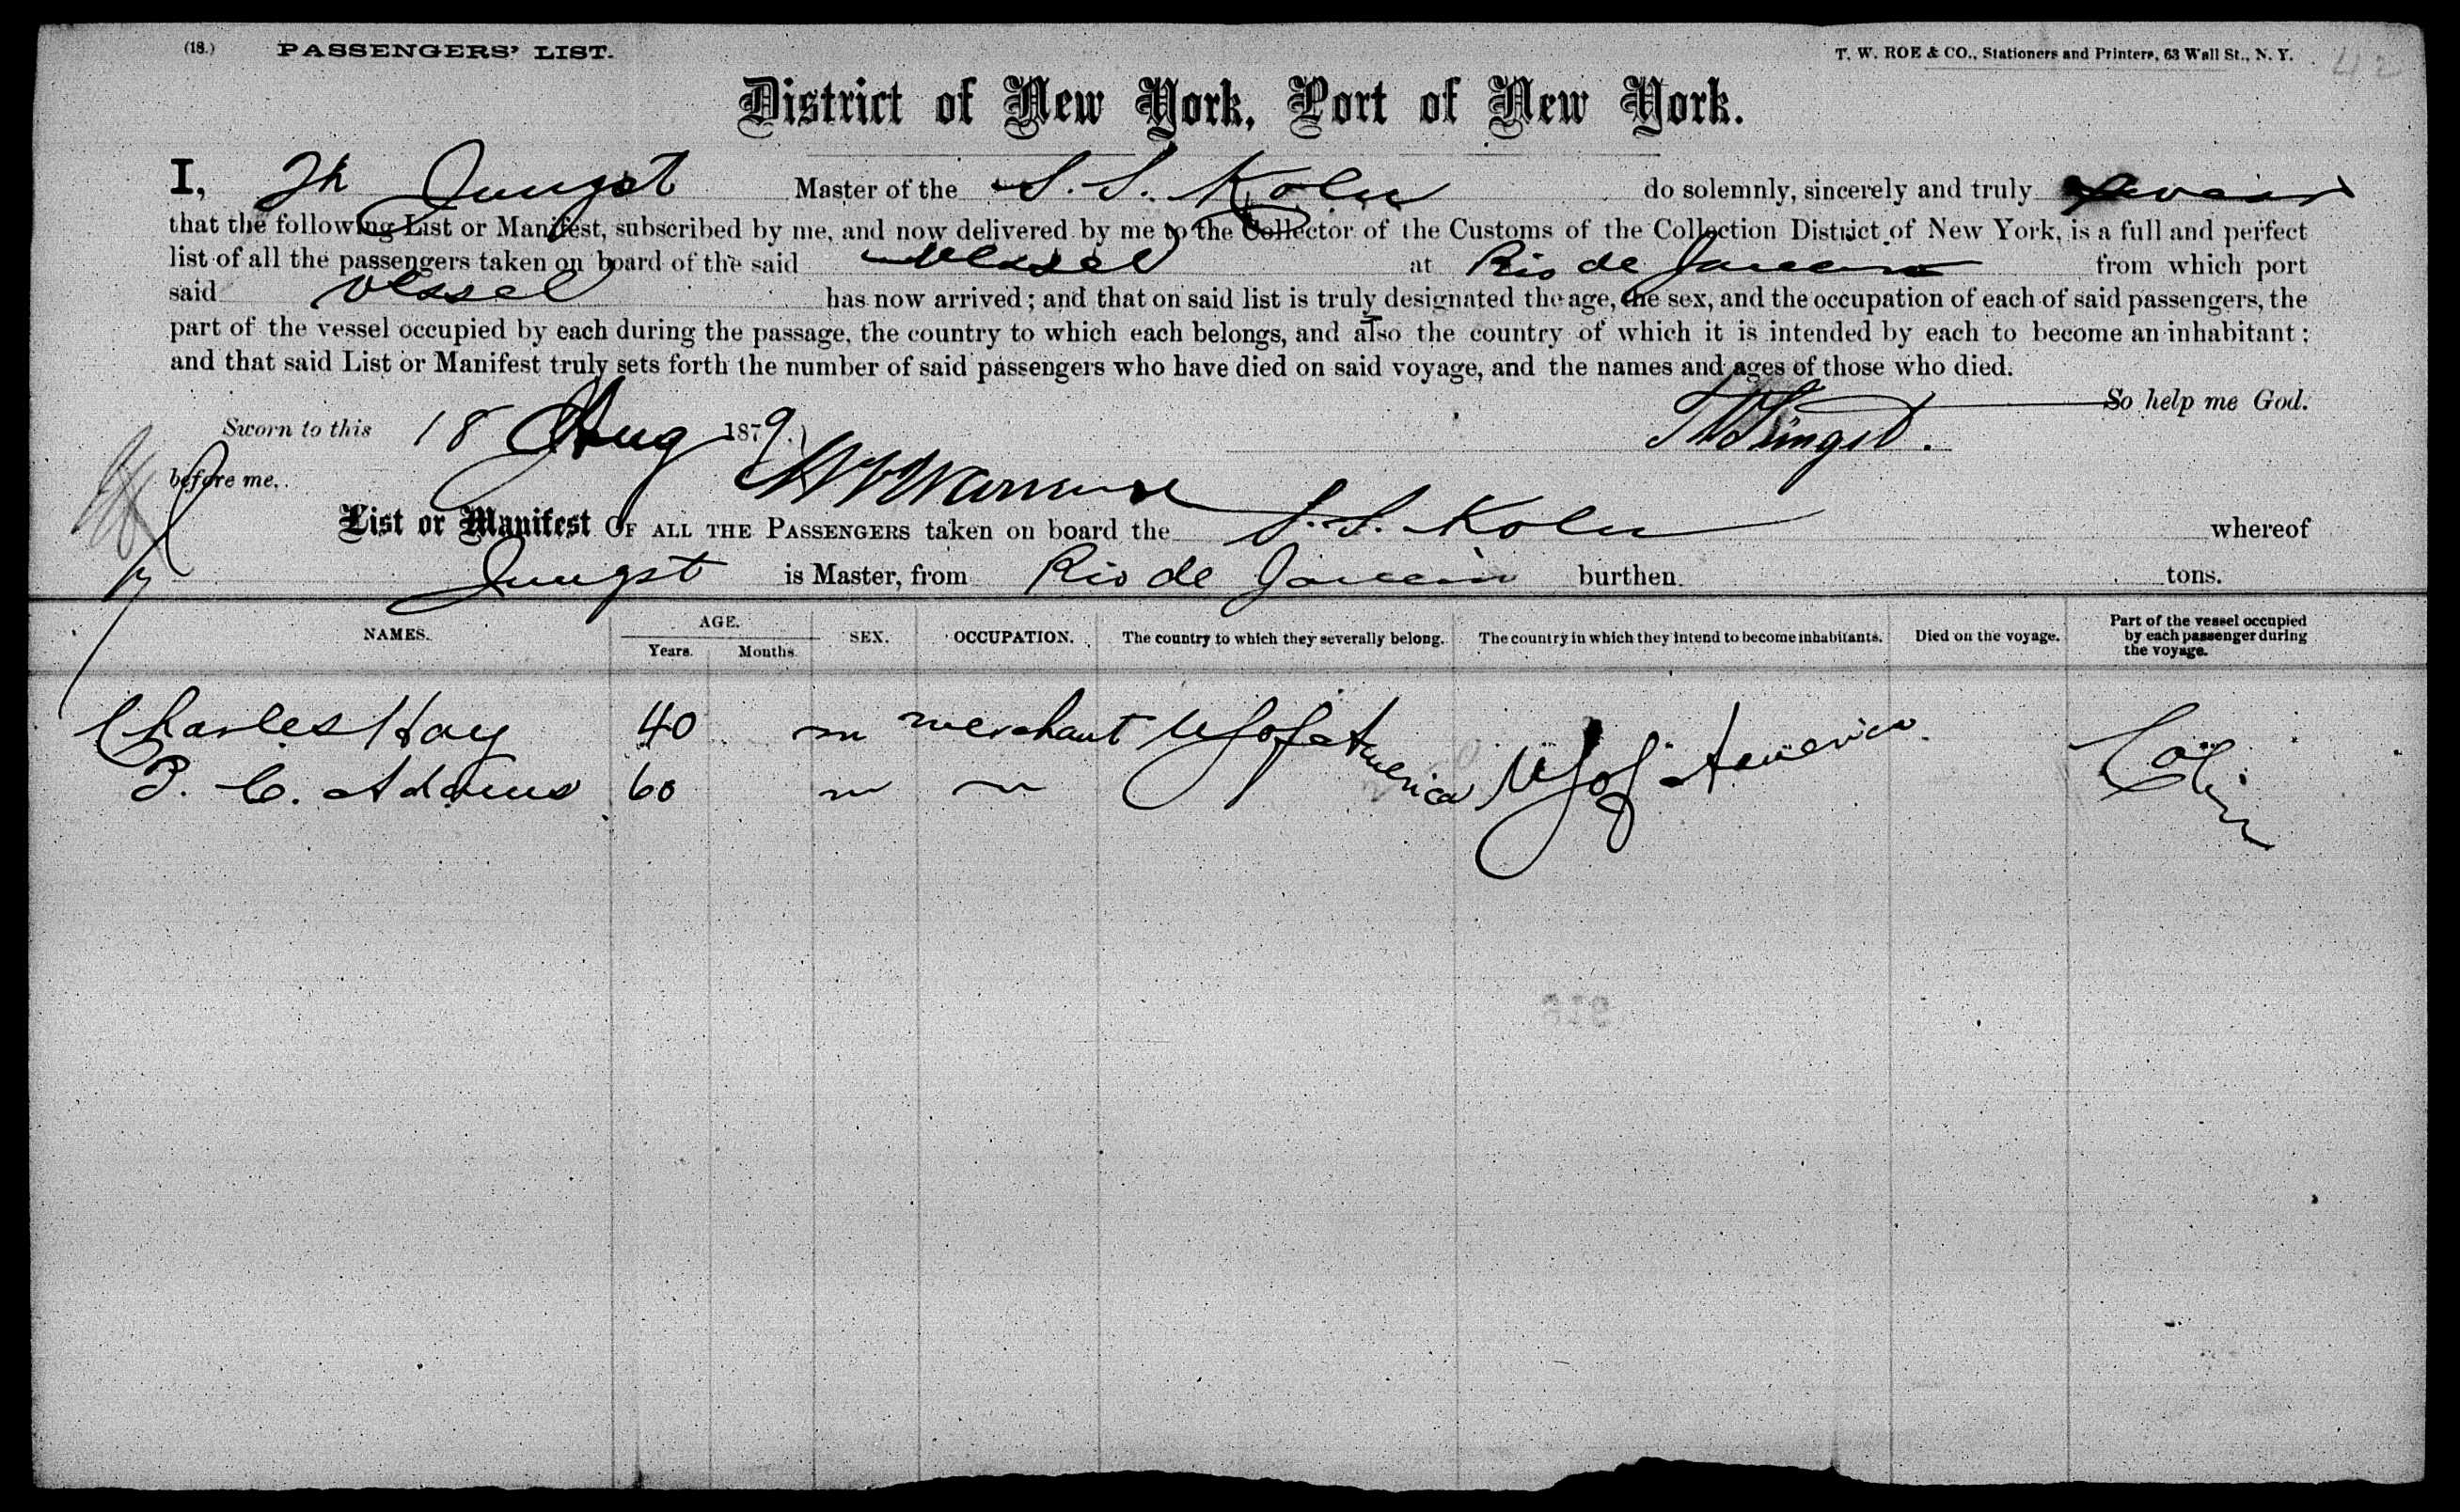 (18.) PASSENGERS' LIST. T. W. ROE & CO., Stationers and Printers, 63 Wall St., N. Y. 42
District of New York, Port of New York.
I, Th Jungst Master of the S.S. Koln do solemnly, sincerely and truly swear
that the following List or Manifest, subscribed by me, and now delivered by me to the Collector of the Customs of the Collection District of New York, is a full and perfect
list of all the passengers taken on board of the said Vessel at Rio de Janeiro from which port
said Vessel has now arrived; and that on said list is truly designated the age, the sex, and the occupation of each of said passengers, the
part of the vessel occupied by each during the passage, the country to which each belongs, and also the country of which it is intended by each to become an inhabitant;
and that said List or Manifest truly sets forth the number of said passengers who have died on said voyage, and the names and ages of those who died.
So help me God.
Sworn to this 18 Aug 1879. Th Jüngst.
before me,
List or Manifest OF ALL THE PASSENGERS taken on board the S.S. Koln whereof
Jungst is Master, from Rio de Janeiro burthen tons.
NAMES. AGE. Years. Months. SEX. OCCUPATION. The country to which they severally belong. The country in which they intend to become inhabitants. Died on the voyage. Part of the vessel occupied by each passenger during the voyage.
Charles Hay 40 m merchant US of America US of America Cabin
P. C. Adams 60 m "